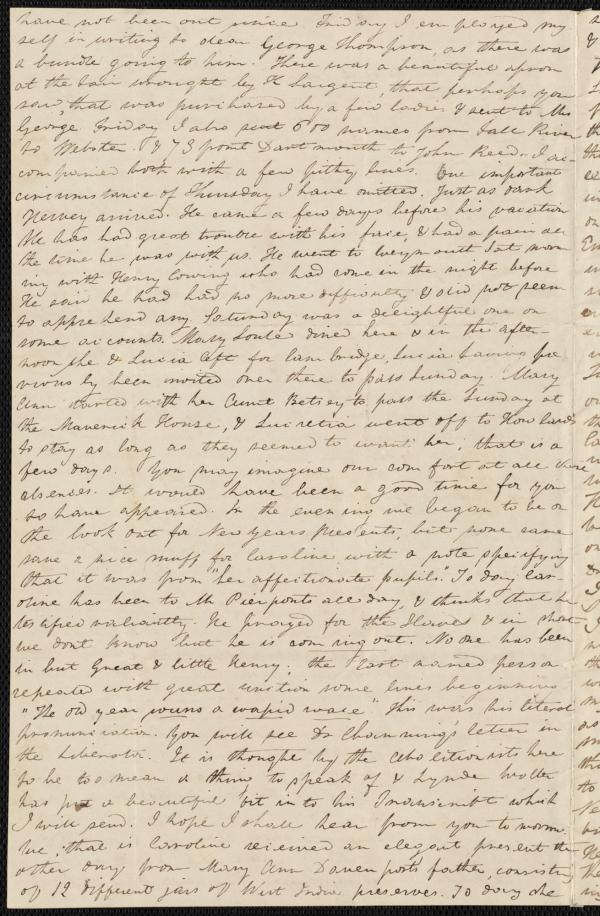 have not been out since. Friday I employed my
self in writing to dear George Thompson, as there was
a bundle going to him. There was a beautiful apron
at the Fair wrought by H Sargent, that perhaps you
saw, that was purchased by a few ladies & sent to Mrs
George. Friday I also sent 600 names from Fall River
to Webster. & 73 from Dartmouth to John Reed. I ac-
companied both with a few pithy lines. One important
circumstance of Thursday I have omitted. Just as dark
Hervey arrived. He came a few days before his vacation
He has had great trouble with his face, & had a pain all
the time he was with us. He went to Weymouth Sat morn
ing with Henry Cowing who had come in the night before
He said he had had no more difficulty & did not seem
to apprehend any. Saturday was a delightful one on
some accounts. Mary Soule dined here & in the after-
noon she & Lucia left for Cambridge, Lucia having pre
viously been invited over there to pass Sunday. Mary
Ann started with her Aunt Betsey to pass the Sunday at
the Maverick House, & Lucretia went off to How lands
to stay as long as they seemed to want her, that is a
few days. You may imagine our comfort at all these
absences. It would have been a good time for you
to have appeared. In the evening we began to be on
the look out for New Years Presents, but none came
save a nice muff for Caroline with a note specifying
that it was from "her affectionate pupils." To day Car-
oline has been to Mr Pierponts all day, & thinks that he
testified valiantly. He prayed for the Slaves & in short
we dont know but he is coming out. No one has been
in but Great & little Henry. the last named person
repeated with great unction some lines beginning
"The old year wuns a wapid wace" This was his literal
pronunciation. You will see Dr Channing's letter in
the Liberator. It is thought by the abolitionists here
to be too mean a thing to speak of & Lynde Wolter
has put a beautiful bit in to his Transcript which
I will send. I hope I shall hear from you to morrow.
We, that is Caroline received an elegant present the
other day from Mary Ann Davenports father, consisting
of 12 different jars of West India preserves. To day she